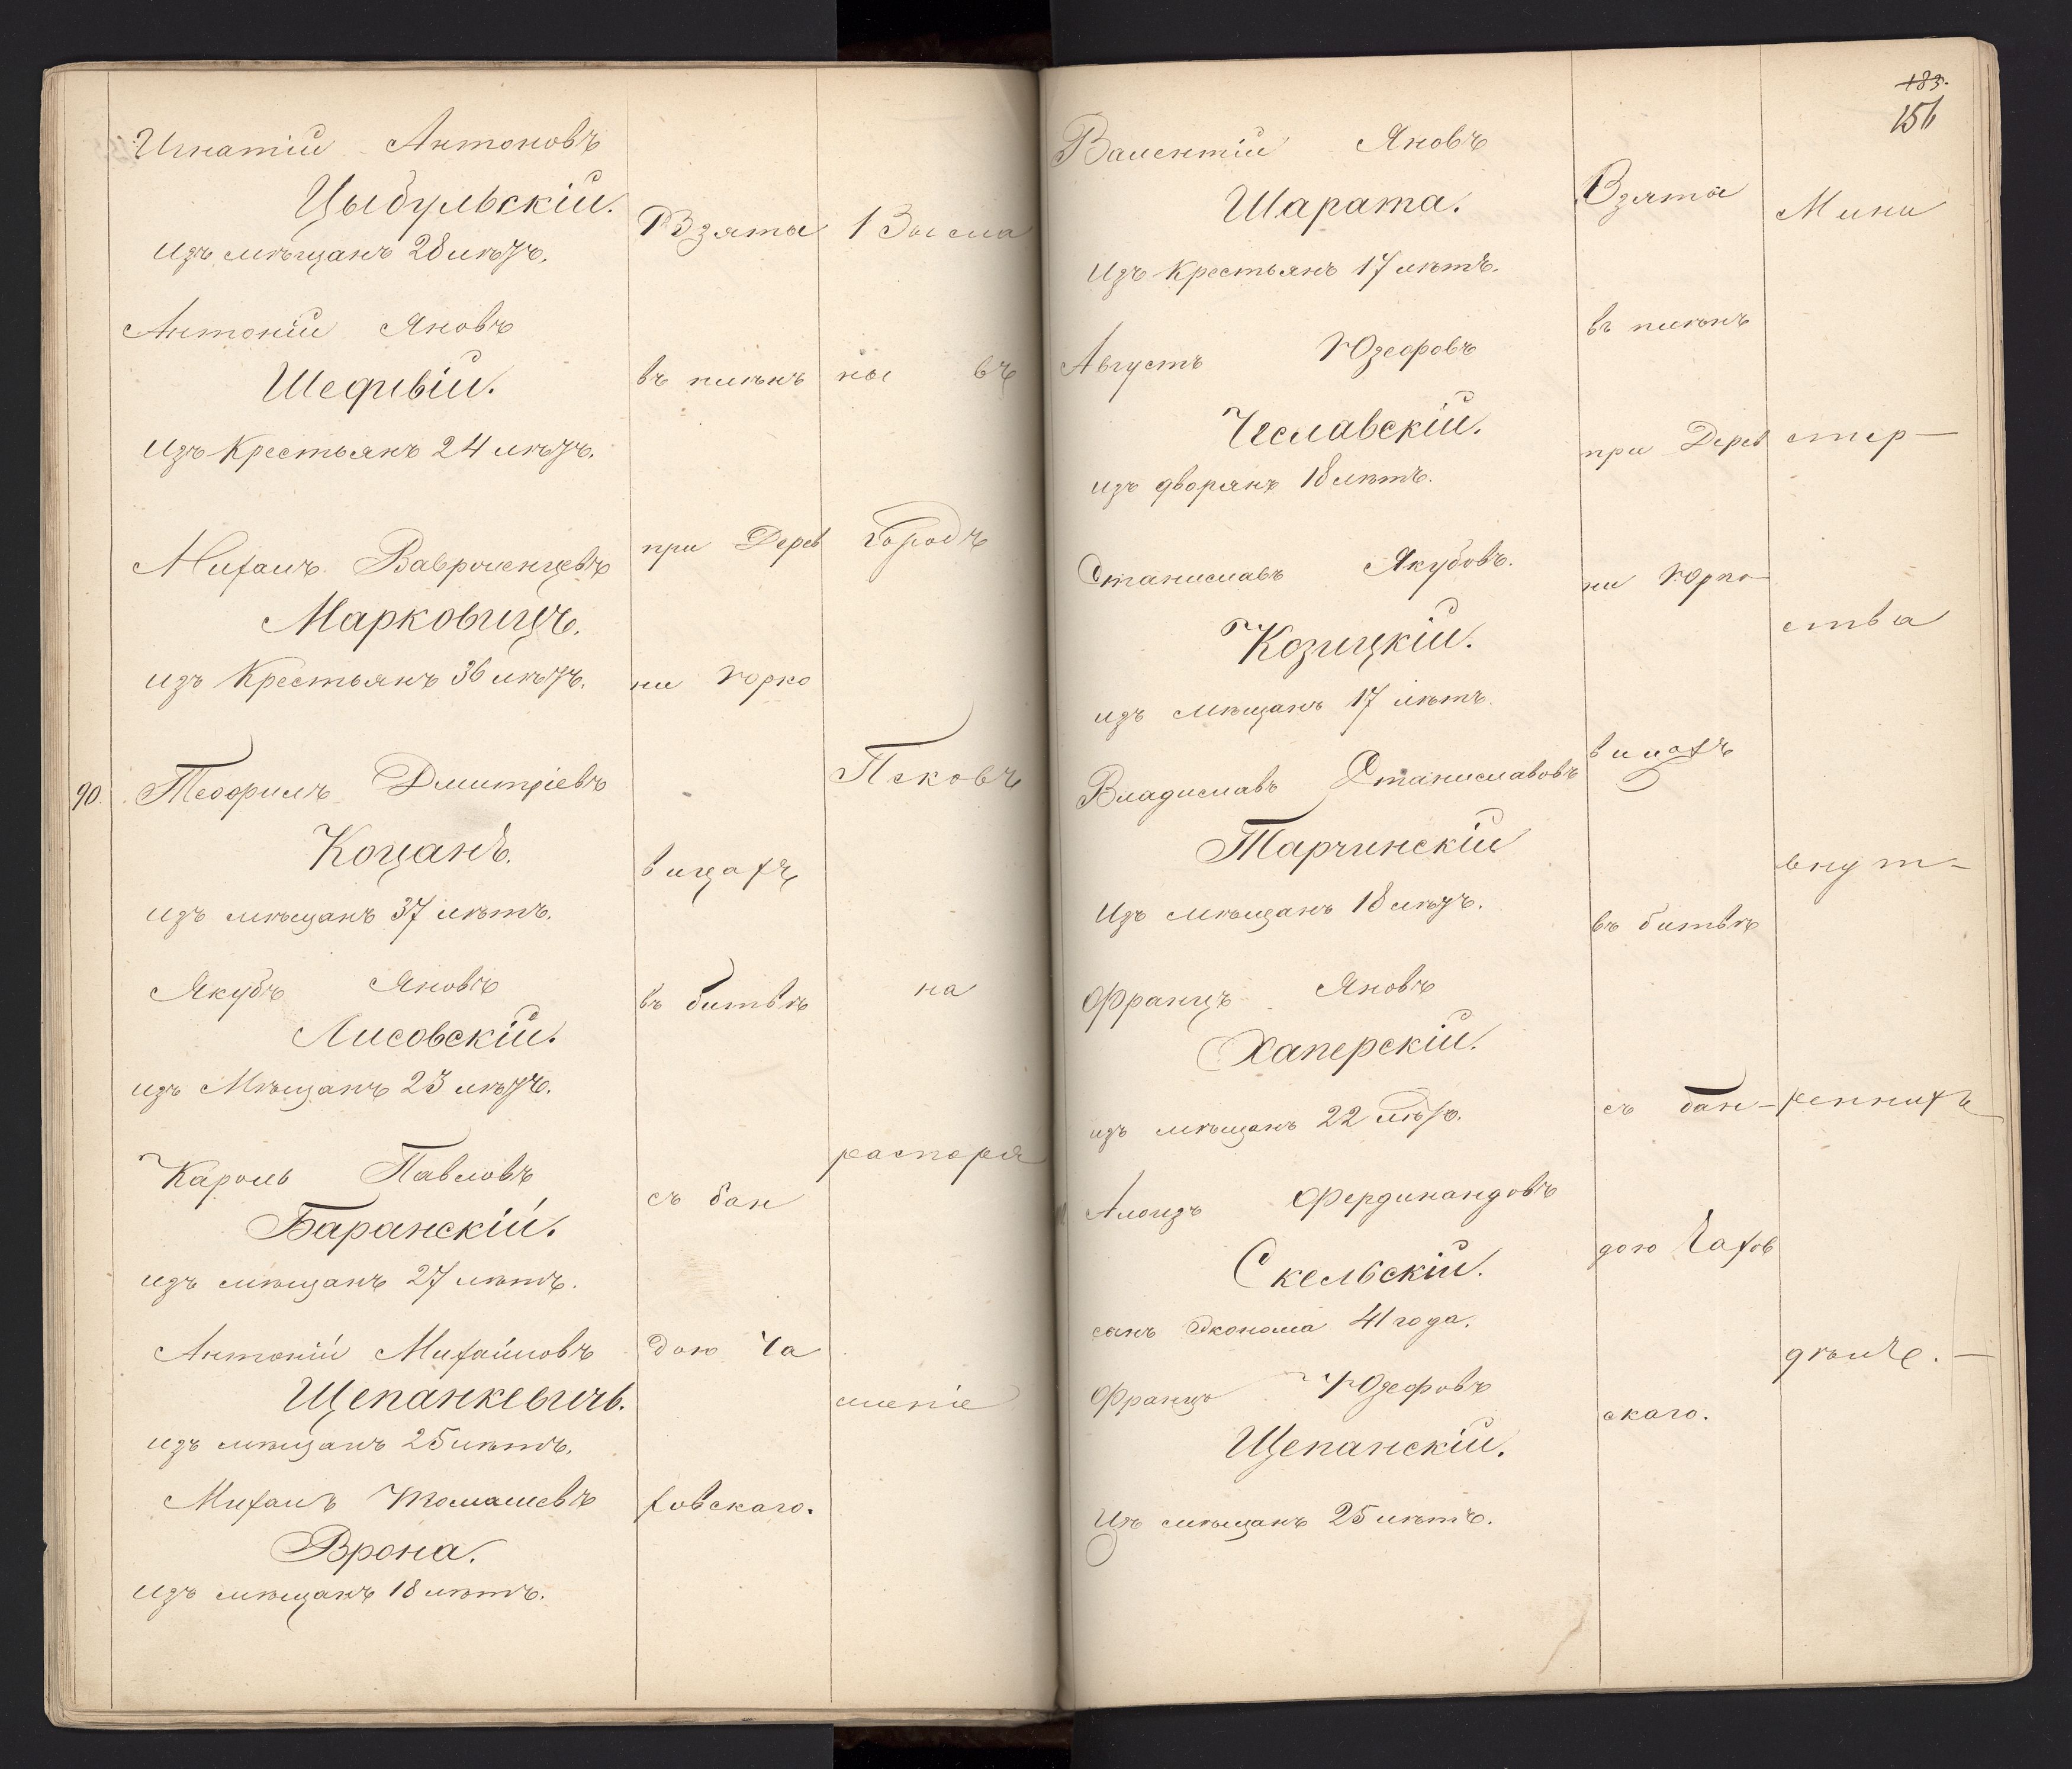 Игнатій Антоновъ
Цыбульскій.
изъ мѣщанъ 28 лѣтъ.
Антоній Яновъ
Шефивій.
изъ Крестьянъ 24 лѣтъ.
Михаилъ Вавренцевъ
Марковичъ.
изъ Крестьянъ 36 лѣтъ.
90. Теофилъ Дмитріевъ
Коцанъ.
изъ мѣщанъ 37 лѣтъ.
Якубъ Яновъ
Лисовскій.
изъ Мѣщанъ 23 лѣтъ.
Кароль Павловъ
Баранскій.
изъ мѣщанъ 27 лѣтъ.
Антоній Михайловъ
Щепанкевичъ.
изъ мѣщанъ 25 лѣтъ.
Михаилъ Томашевъ
Врона.
изъ мѣщанъ 18 лѣтъ.
Взяты
въ плѣнъ
при Дерев
ни Юрко
вицахъ
въ битвѣ
съ бан
дою Ча
ховскаго.
Высла
ны въ
городъ
Псковъ
на
распоря
женіе
185.
156
Валентій Яновъ
Шарата.
изъ Крестьянъ 17 лѣтъ.
Августъ Юзефовъ
Чеславскій.
изъ дворянъ 18 лѣтъ.
Станиславъ Якубовъ.
Козицкій.
изъ мѣщанъ 17 лѣтъ.
Владиславъ Станиславовъ
Тарчинскій
изъ мѣщанъ 18 лѣтъ.
Францъ Яновъ
Хаперскій.
изъ мѣщанъ 22 лѣтъ.
Алоизъ Фердинандовъ
Скельскій.
сынъ Эконома 41 года.
Францъ Юзефовъ
Щепанскій.
Изъ мѣщанъ 25 лѣтъ.
Взяты
въ плѣнъ
при Дерев
ни Юрко-
вицахъ
въ битвѣ
съ бан-
дою Чахов
скаго.
Мини
стер-
ства
внут-
реннихъ
дѣлъ.-